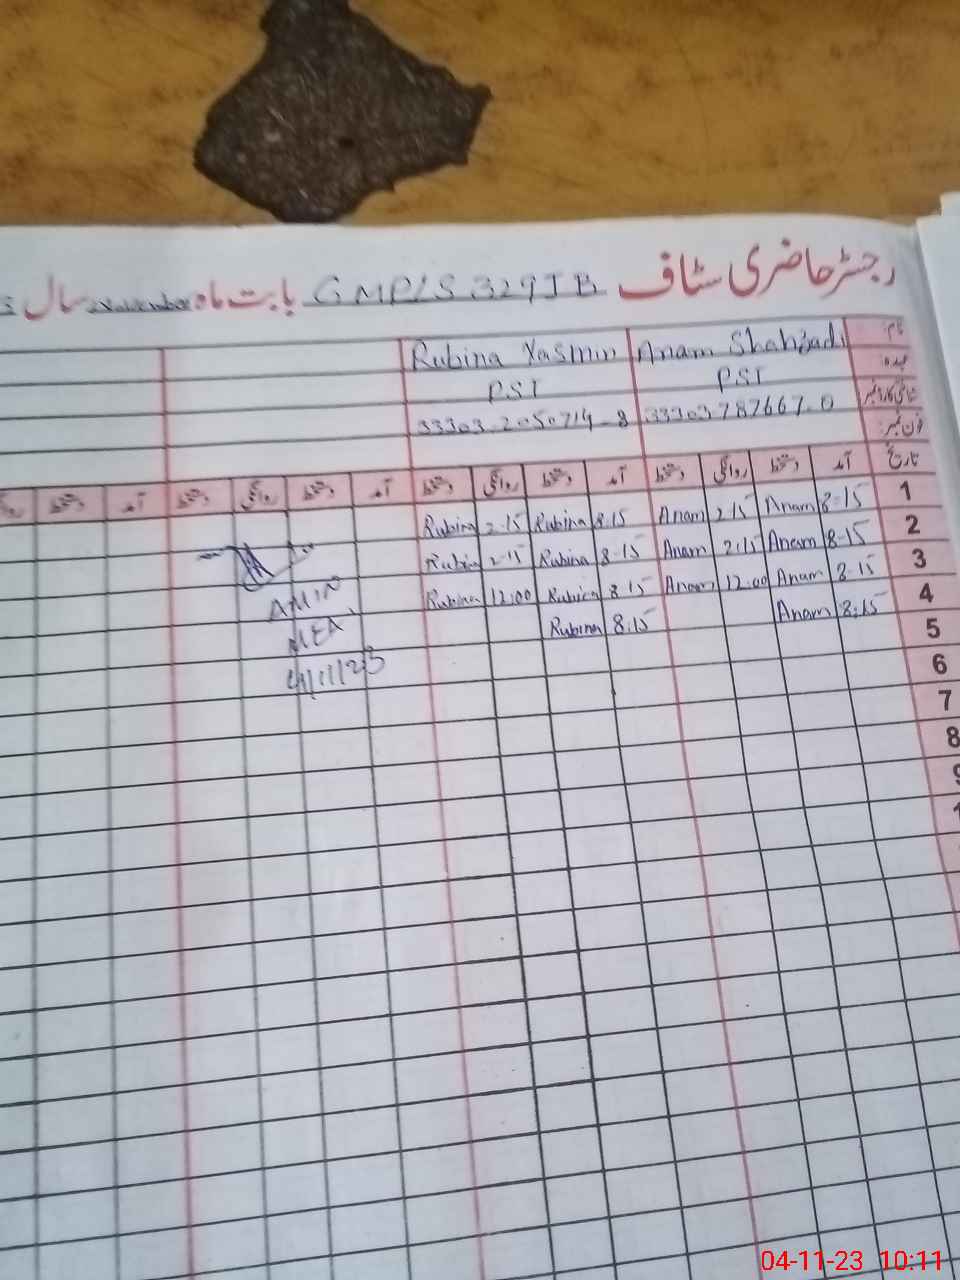 رجسٹر حاضری سٹاف GMP/S 329JB بابت ماہ November سال
نام: Anam Shahzadi Rubina Yasmin
عہدہ: PST PST
شناختی کارڈ نمبر: 33303-787667-0 33303-2050714-8
فون نمبر:
تاریخ آمد دستخط روانگی دستخط آمد دستخط روانگی دستخط آمد دستخط روانگی دستخط آمد دستخط
1 8-15 Anam 2:15 Anam 8.15 Rubina 2.15 Rubina
2 8-15 Anam 2:15 Anam 8-15 Rubina 2-15 Rubina
3 8-15 Anam 12:00 Anam 8.15 Rubina 12:00 Rubina
4 8:15 Anam 8:15 Rubina
5
6
7
8
AMIN
MEA
4/11/23
04-11-23 10:11